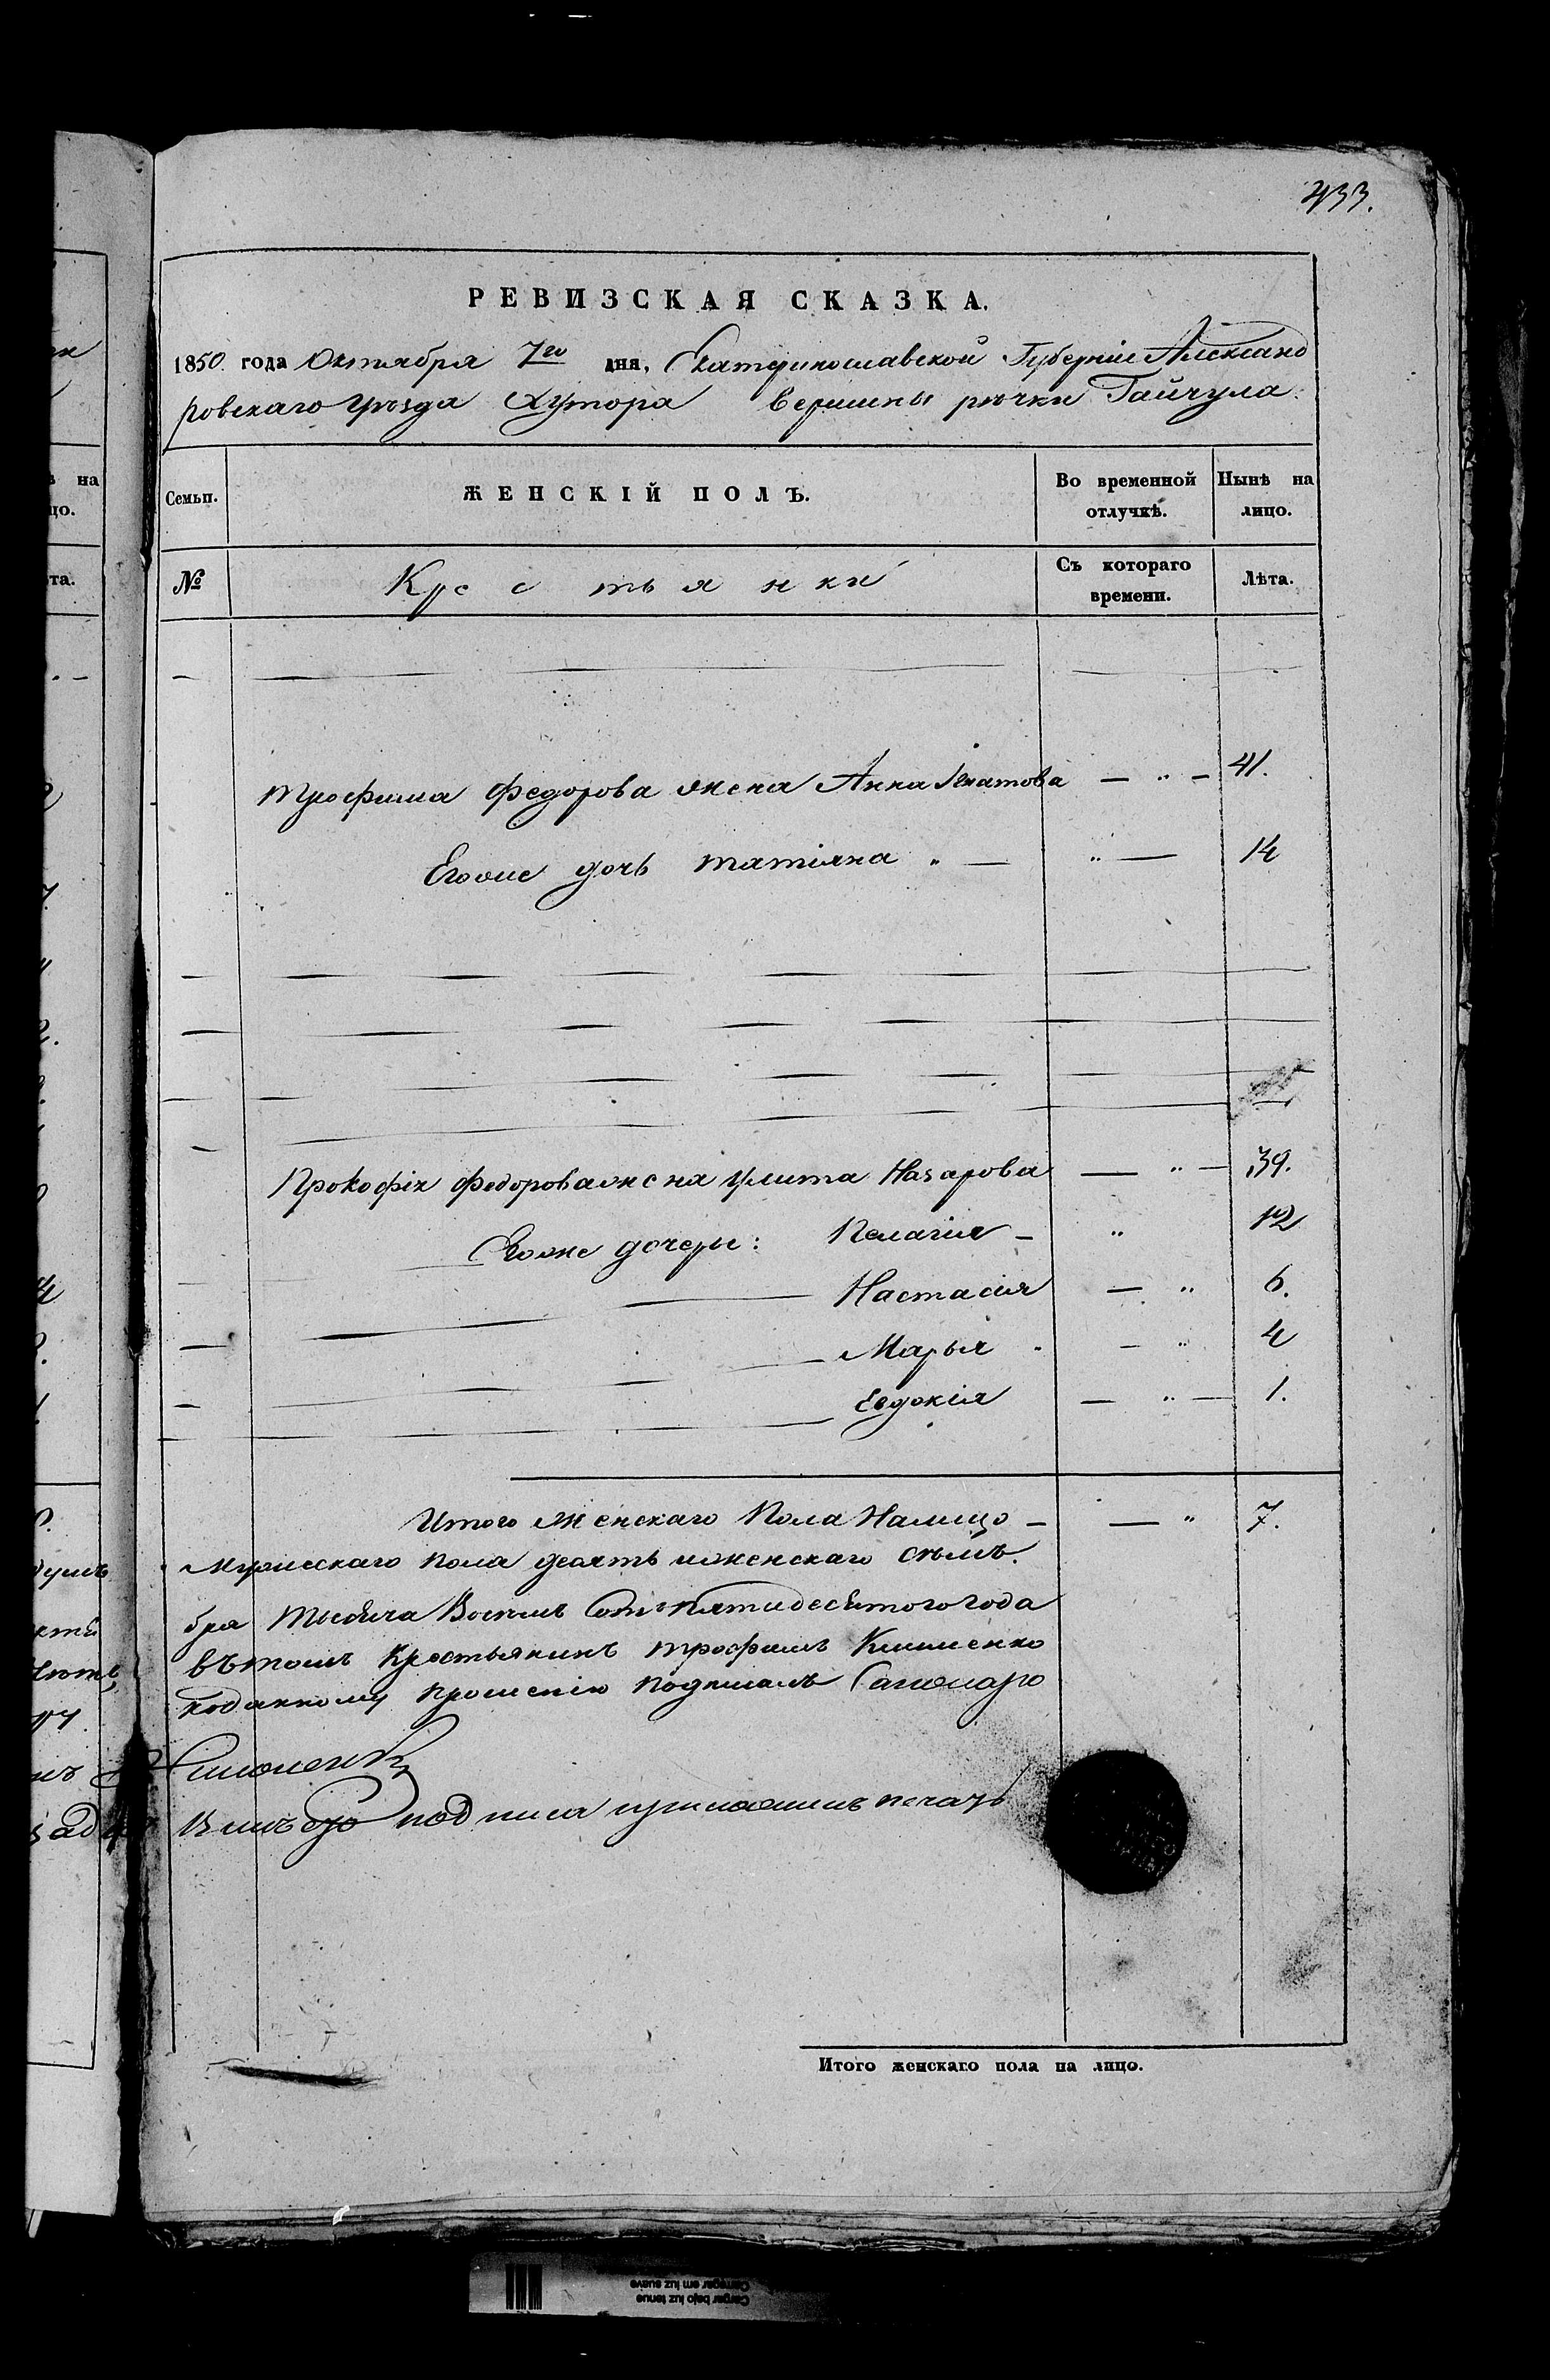 433.
РЕВИЗСКАЯ СКАЗКА.
1850 года Октября 7го дня, Екатеринославской Губерніи Александ
ровскаго уѣзда Хутора вершины рѣчки Гайчула
Семьи.
ЖЕНСКІЙ ПОЛЪ.
Во временной отлучкѣ.
Нынѣ на лицо.
№
Крестьянки
Съ котораго времени.
Лѣта.
Трофима Федорова жена Анна Игнатова — " — 41.
Егоже дочь Татіяна " — " — 14
Прокофія Федорова жена Улита Назарова — " — 39.
Егоже дочери: Пелагія — " 12
Настасія — " 6.
Марья — " 4
Евдокія — " — 1.
Итого женскаго пола Налицо — — " 7.
Мужескаго пола десять иженскаго семь.
бря Тысяча Восемь Сотъ Пятидесятого года
вътомъ Крестьянинъ Трофимъ Клименко
поданному прошенію подписалъ
подписи печать
Итого женскаго пола на лицо.
на
цо.
та.
Cargar bajo luz tenue
Carregar em luz suave